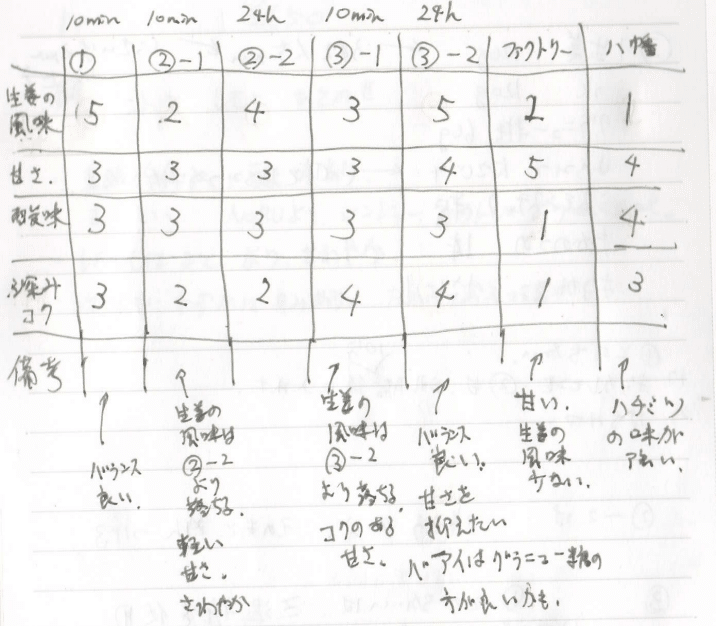 10min 10min 24h 10min 24h
① ②-1 ②-2 ③-1 ③-2 ファクトリー 八幡
生姜の風味 5 2 4 3 5 2 1
甘さ. 3 3 3 3 4 5 4
酸味 3 3 3 3 3 1 4
深み コク 3 2 2 4 4 1 3
備考
バランス
良い.
生姜の
風味は
②-2
より
落ちる.
軽い
甘さ.
さわやか
生姜の
風味は
③-2
より落ちる.
コクのある
甘さ.
バランス
良い.
甘さを
抑えたい
バアイはグラニュー糖の
方が良いかも.
甘い.
生姜の
風味
少ない.
ハチミツ
の味が
強い.